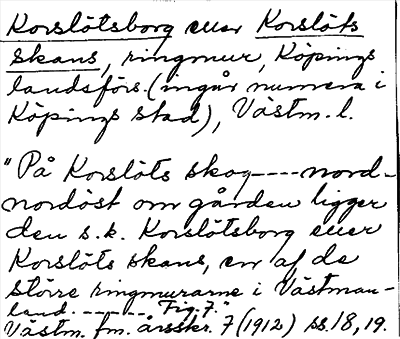 Korslötsborg eller Korslöts
skans, ringmur, Köpings
landsförs. (ingår numera i
Köpings stad), Västm. l.
"På Korslöts skog----nord-
nordöst om gården ligger
den s.k. Korslötsborg eller
Korslöts skans, en af de
större ringmurarne i Västman-
land. ------- Fig. 7."
Västm. fm. årsskr. 7 (1912) ss. 18, 19.